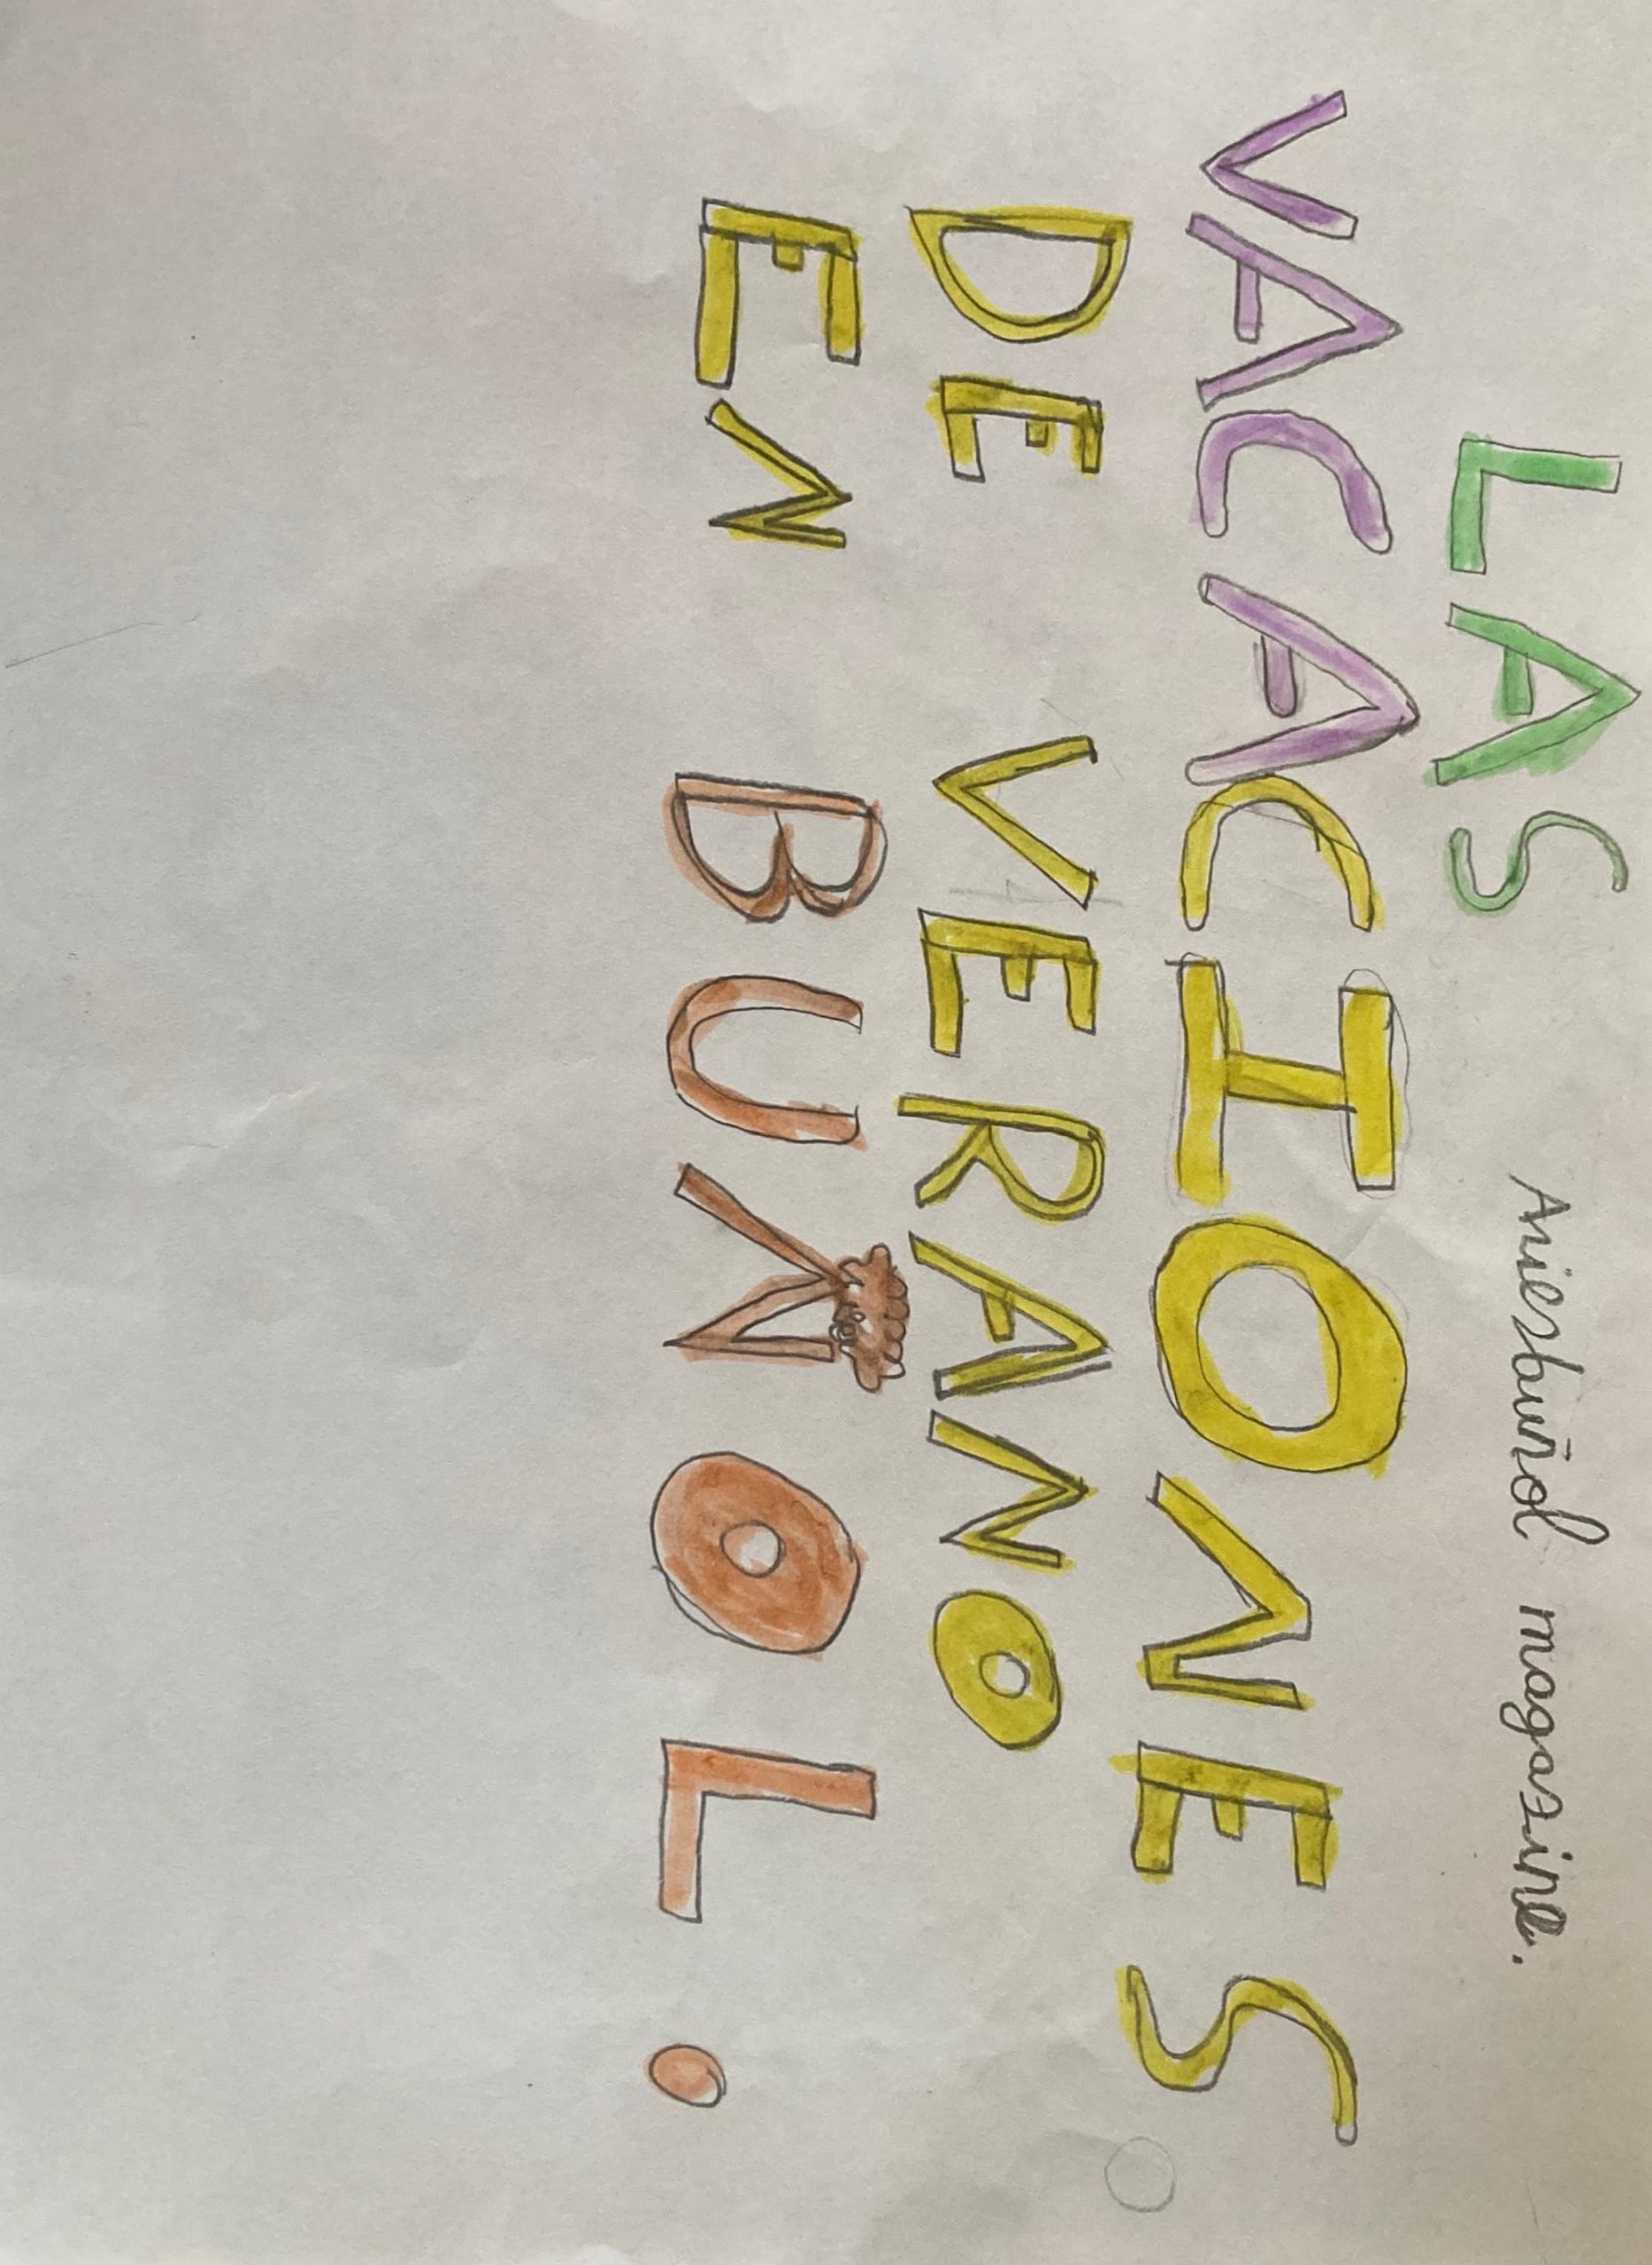 LAS
Aniesbuñol magazine.
VACACIONES
DE VERANO
EN BUÑOL.